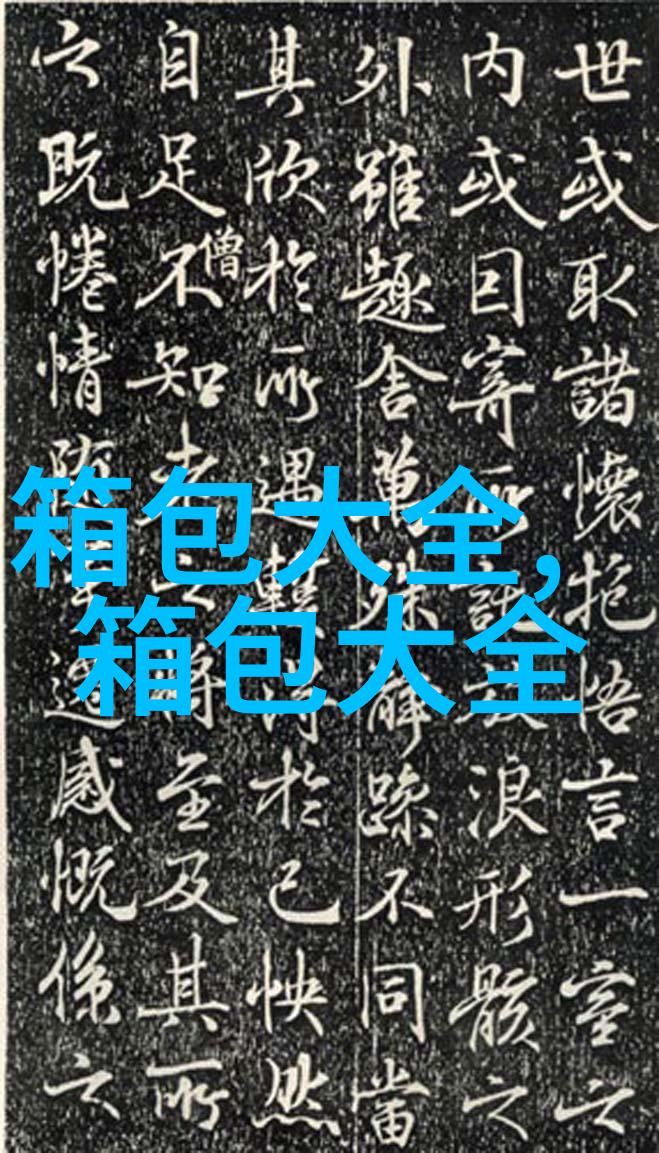 箱包大全,
箱包大全
世或取諸懷抱悟言一室之
内或因寄所託放浪形骸之
外雖趣舍萬殊靜躁不同當
其欣於所遇蹔得於己怏然
自足不知老之將至及其所
僧
之既惓情隨事遷感慨係之